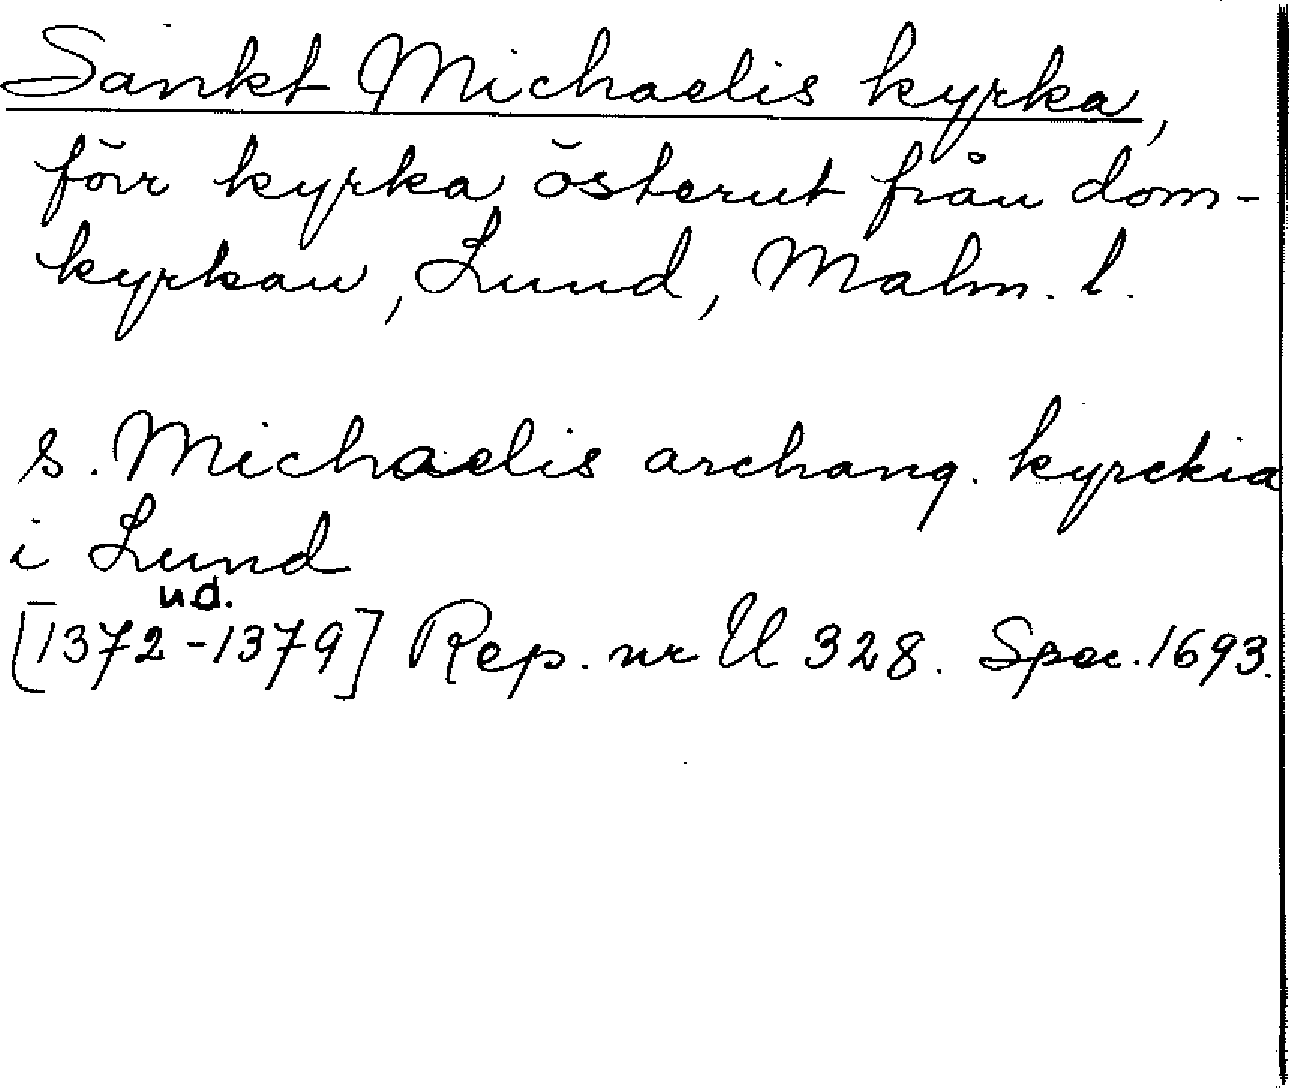 Sankt Michaelis kyrka,
förr kyrka österut från dom-
kyrkan, Lund, Malm. l.
s. Michaelis archang. kyrckia
i Lund
u.d.
[1372-1379] Rep. nr U 328. Spec. 1693.